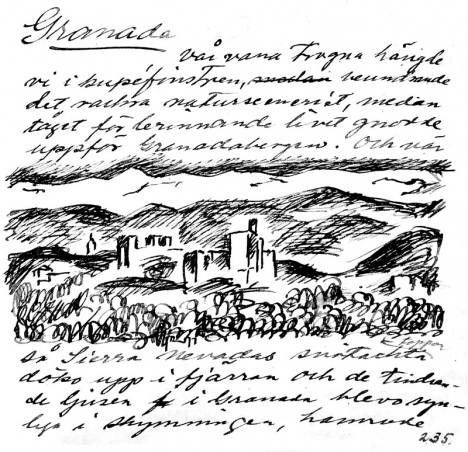 Granada
vår vana trogna hängde
vi i kupéfönstren, beundrande
det vackra natursceneriet, medan
tåget för brinnande livet gnodde
uppför Granadabergen. Och när
toppar
så Sierra Nevadas snötäckta
döko upp i fjärran och de tindran-
de ljusen i Granada blevo syn-
liga i skymningen, hamrade
235.